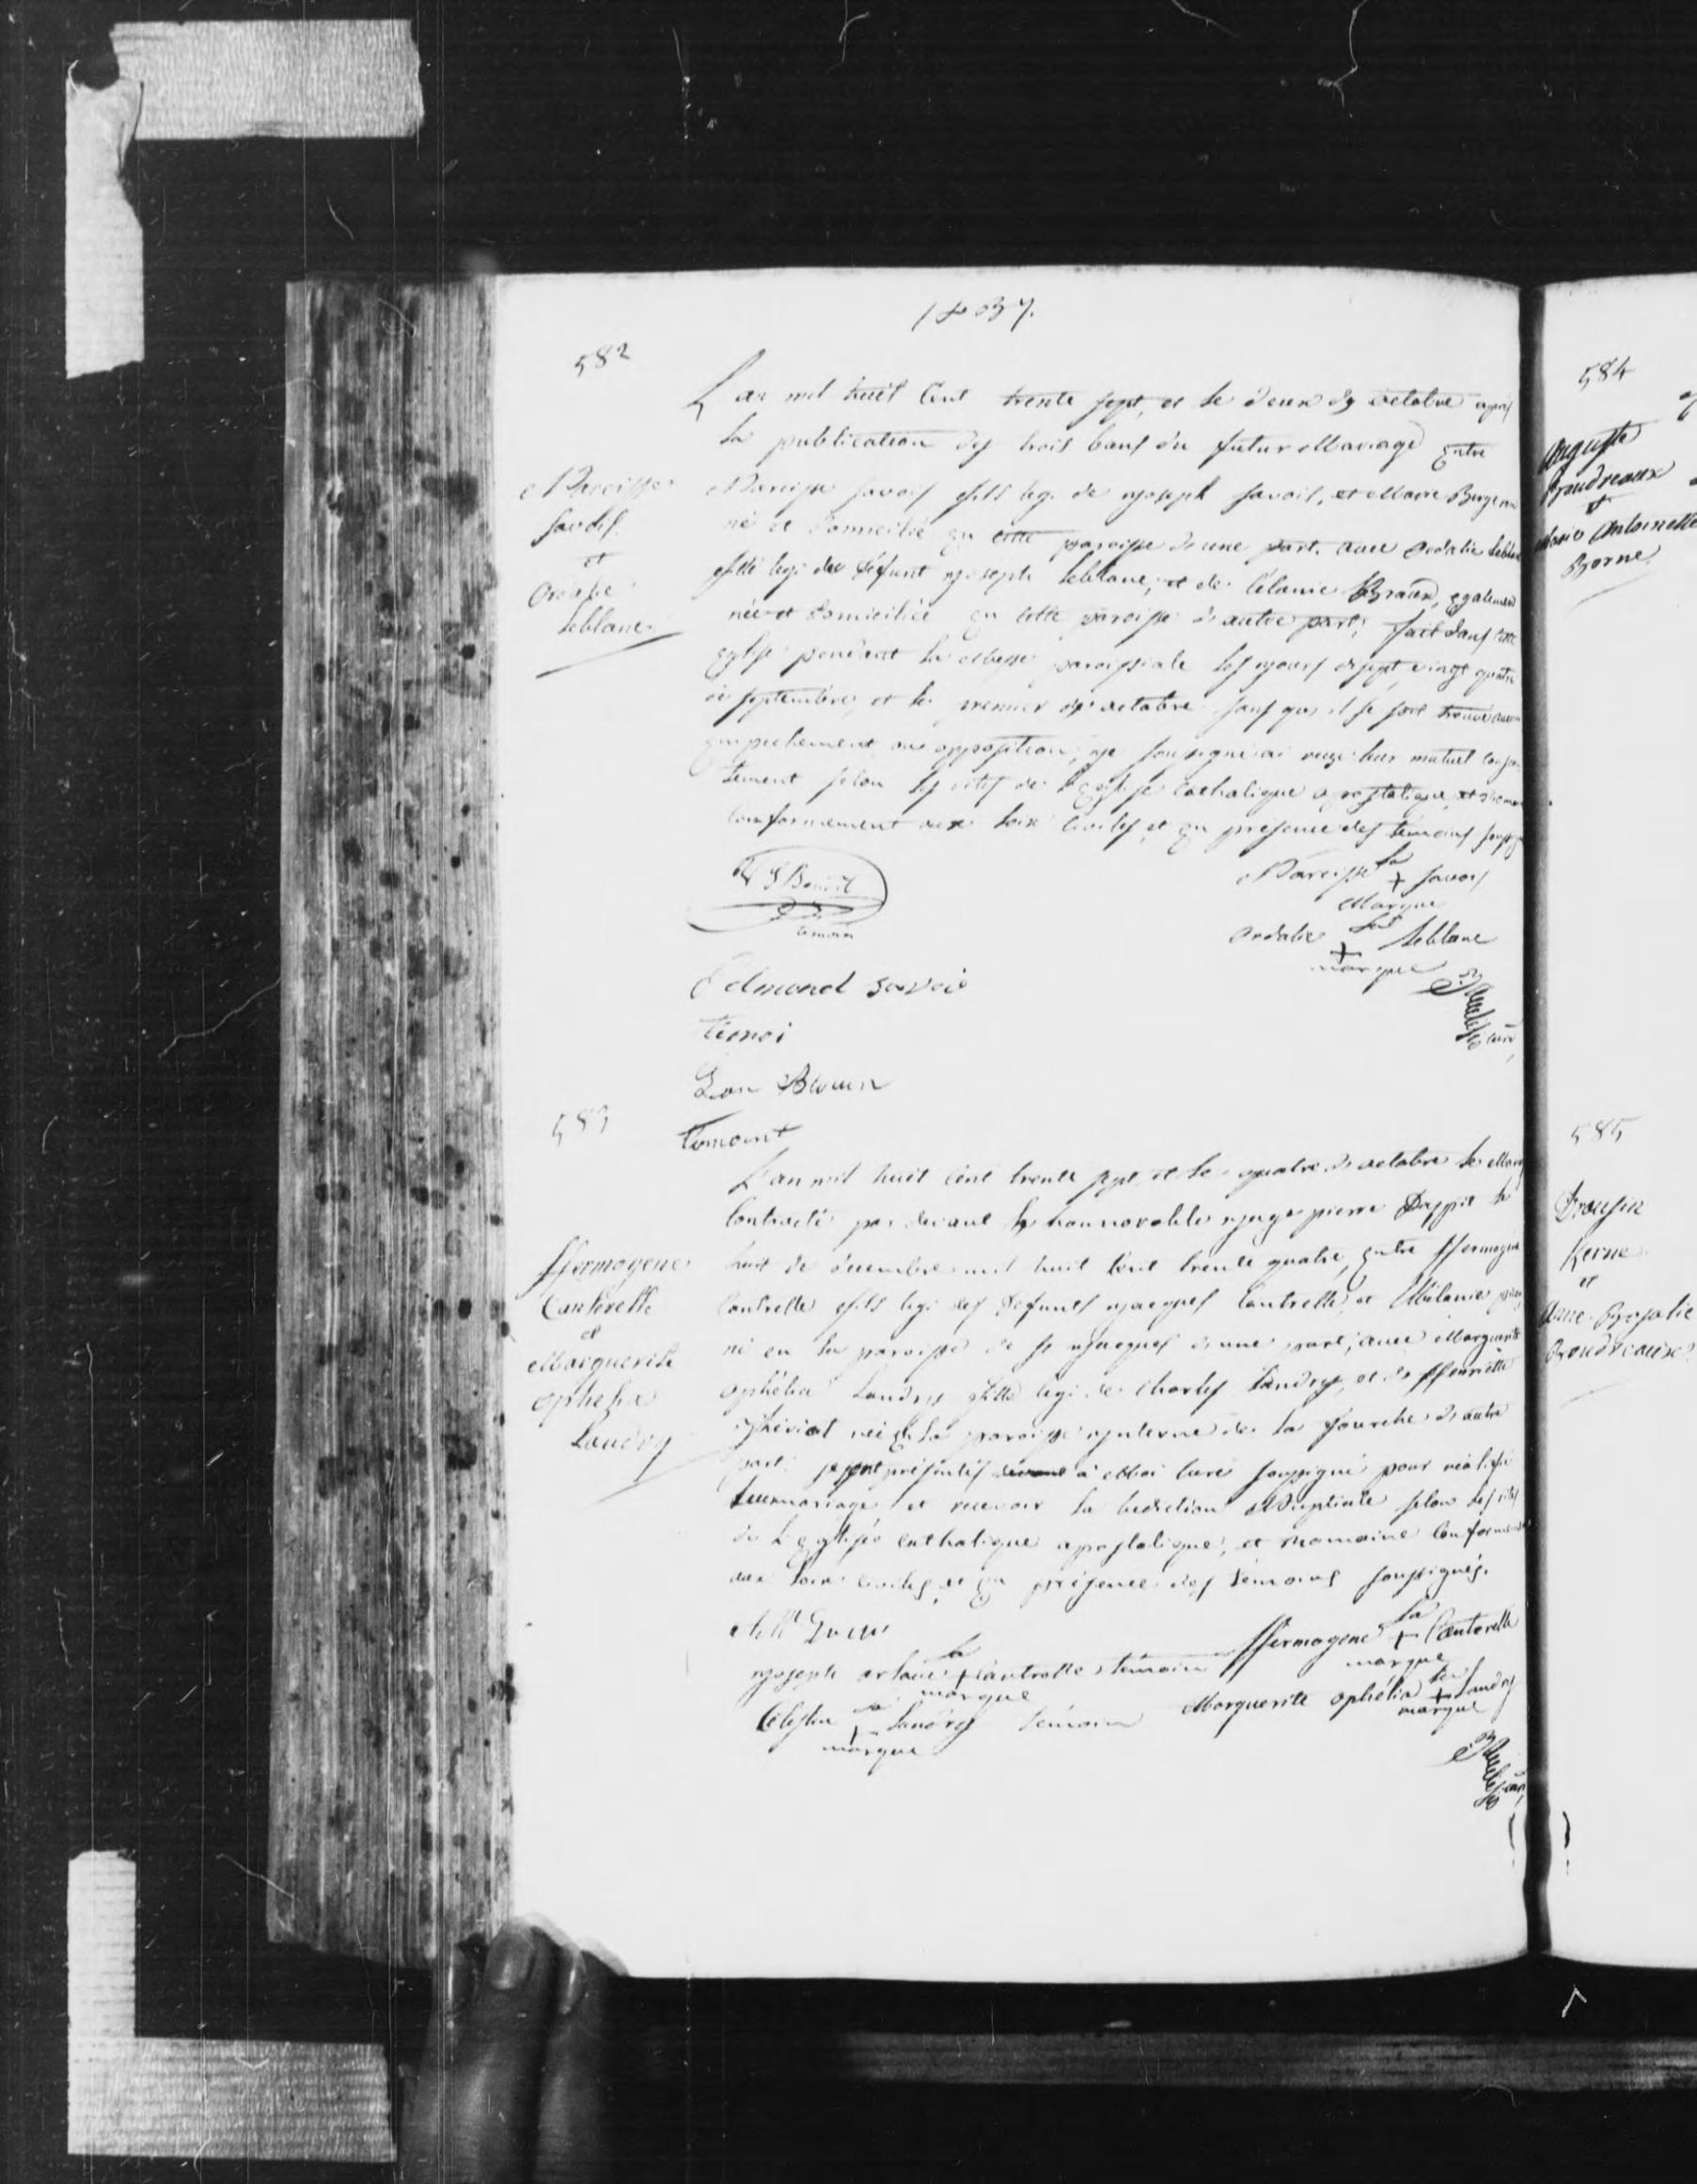 1837.
582
L an mil huit Cent trente sept, et le deux d'octobre après
la publication des trois bans du futur Mariage entre
Narcisse
Savois
et
Ordalie
Leblanc
Narcisse Savois fils leg. de Joseph Savois, et Marie Bergeron
né et domicilié en cette paroisse d'une part. avec Ordalie Leblanc
fille leg. de défunt Joseph Leblanc, et de Célanie Braud, egalement
née et domiciliée en cette paroisse d'autre part; fait dans cette
Eglise pendant la Messe paroissiale les jours disept vingt quatre
de septembre, et le premier d'octobre sans qu'il se soit trouvé aucun
empechement ou opposition; je soussigné ai reçu leur mutuel consen
tement selon les rites de l'Eglise Catholique apostolique et
conformement aux loix Civiles, et en presence des témoins
témoin
Narcisse sa + Savois
Marque
Ordalie sa + Leblanc
marque
curé
Edmond Savoie
témoi
Temoint
583
L'an mil huit Cent trente sept et le quatre d'octobre le
Contracté par devant le honnorable juge pierre le
huit de décembre mil huit cent trente quatre, entre Hermogene
Hermogene
Canterelle
et
Marguerite
Ophelia
Landry
Cantrelle fils leg. des défunts Jacques Cantrelle, et Mélanie
né en la paroisse de St Jacques d'une part; avec Marguerite
Ophélia Landry fille leg. de Charles Landry, et de Henriette
née en la paroisse interne de la fourche d'autre
part se sont présentés devant à Moi Curé soussigné pour
leur mariage et recevoir la Nuptiale selon les rites
de L'Eglise Catholique apostolique, et Romaine Conformement
aux loix civiles, et en présence des témoins soussignés.
Hermogene sa + Canterelle
marque
Joseph sa + Cantrelle témoin
marque
Marguerite Ophélia sa + Landry
marque
sa + Landry témoin
marque
584
Auguste
Boudreaux
et
Marie Antoinette
Borne
585
Drousin
Kerne
et
Rosalie
Boudreaux